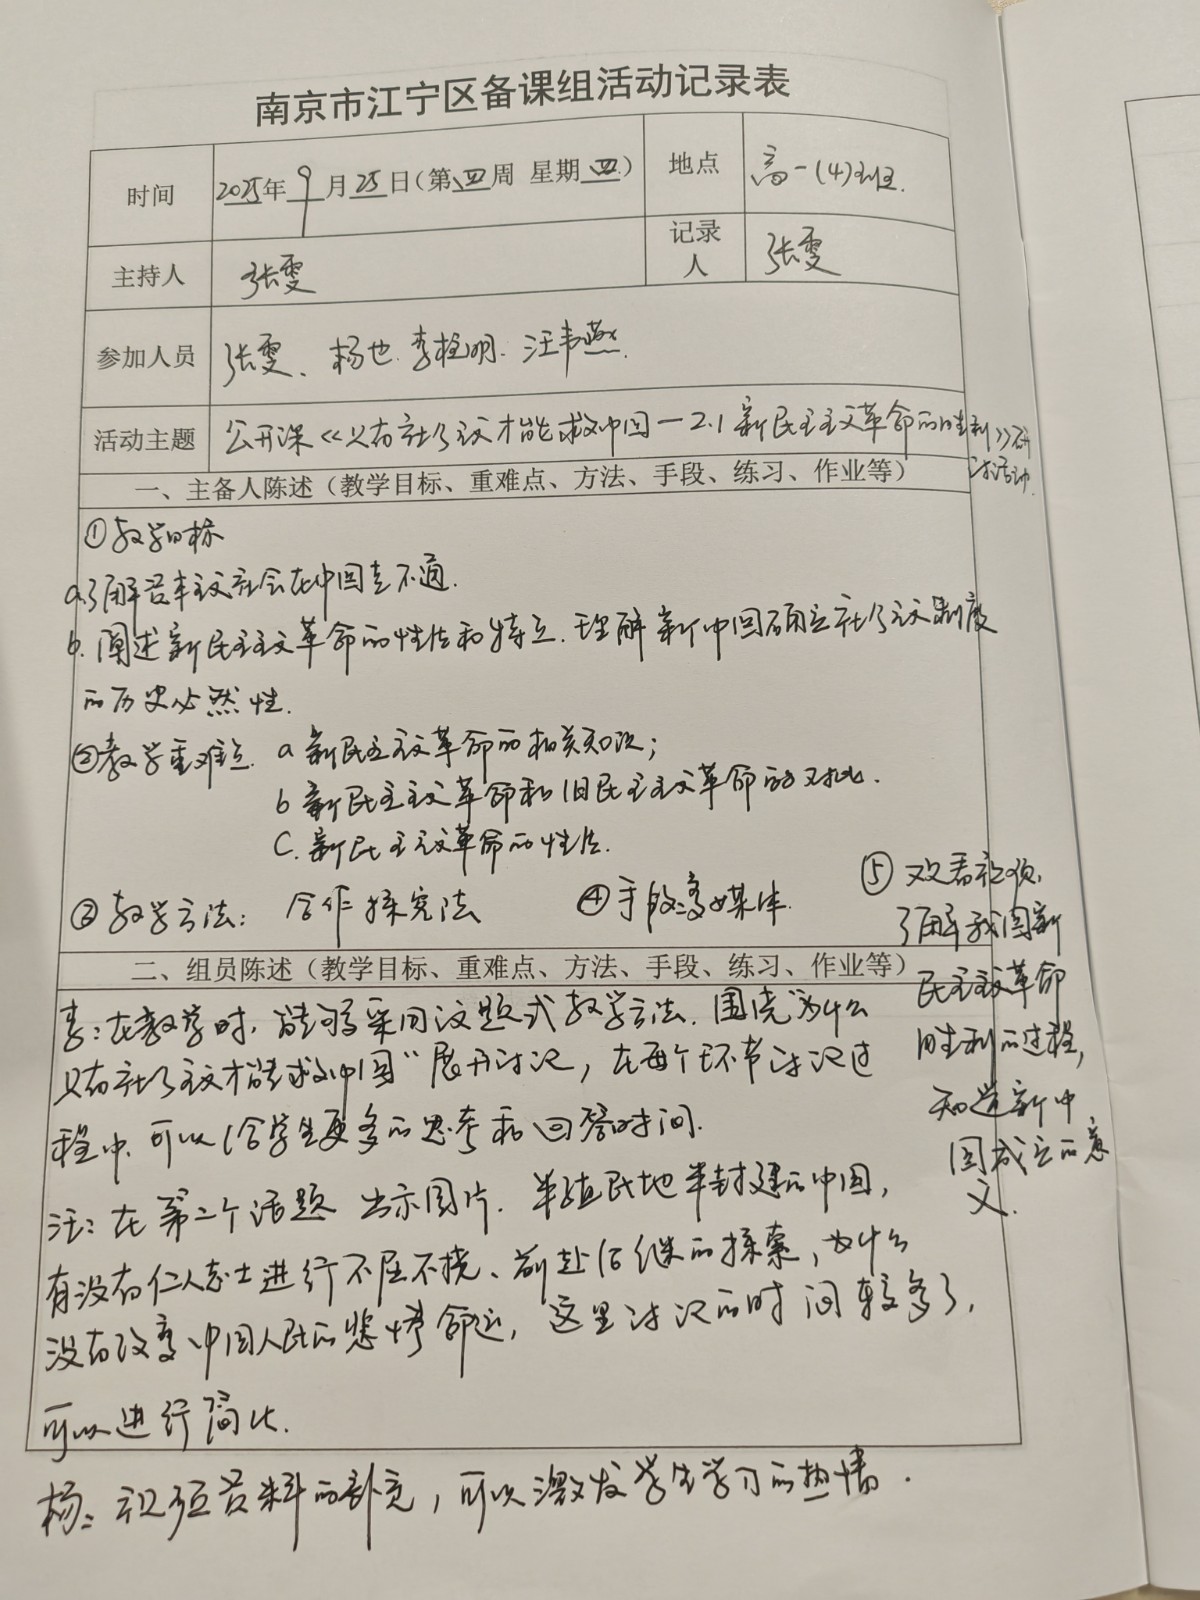 南京市江宁区备课组活动记录表
时间 2025年9月25日(第四周 星期四) 地点 高一(4)班.
主持人 张雯 记录人 张雯
参加人员 张雯、杨也. 李桂明. 汪韦燕.
活动主题 公开课《只有社会主义才能救中国—2.1 新民主主义革命的胜利》研
讨活动.
一、主备人陈述（教学目标、重难点、方法、手段、练习、作业等）
①教学目标
a.了解资本主义社会在中国走不通.
b.阐述新民主主义革命的性质和特点.理解新中国确立社会主义制度
的历史必然性.
②教学重难点. a 新民主主义革命的相关知识；
b 新民主主义革命和旧民主主义革命的对比.
C.新民主主义革命的性质.
③教学方法：合作探究法 ④手段：多媒体.
⑤ 观看视频,
了解我国新
民主主义革命
胜利的过程,
知道新中
国成立的意
义.
二、组员陈述（教学目标、重难点、方法、手段、练习、作业等）
李：在教学时，能够采用议题式教学方法.围绕“为什么
只有社会主义才能救中国”展开讨论，在每个环节讨论过
程中,可以给学生更多的思考和回答时间.
汪：在第二个话题 出示图片. 半殖民地半封建的中国,
有没有仁人志士进行不屈不挠、前赴后继的探索，为什么
没有改变中国人民的悲惨命运，这里讨论的时间较多了,
可以进行简化.
杨：视频资料的补充，可以激发学生学习的热情.